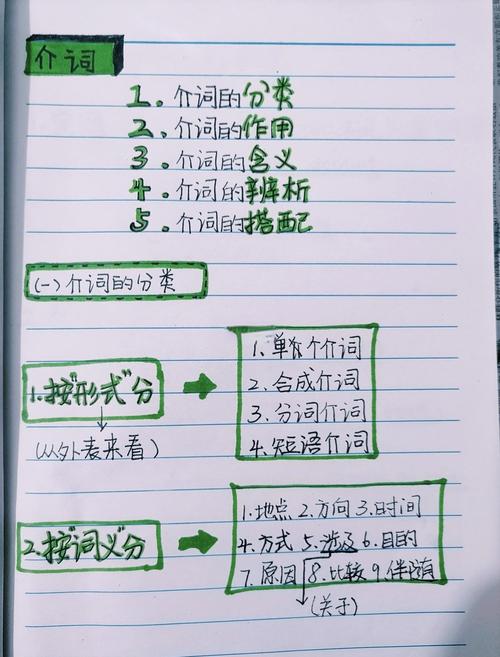 介词
1.介词的分类
2.介词的作用
3.介词的含义
4.介词的辨析
5.介词的搭配
(一)介词的分类
1.按"形式"分
(从外表来看)
1.单个介词
2.合成介词
3.分词介词
4.短语介词
2.按"词义"分
1.地点 2.方向 3.时间
4.方式 5.涉及 6.目的
7.原因 8.比较 9.伴随
(关于)